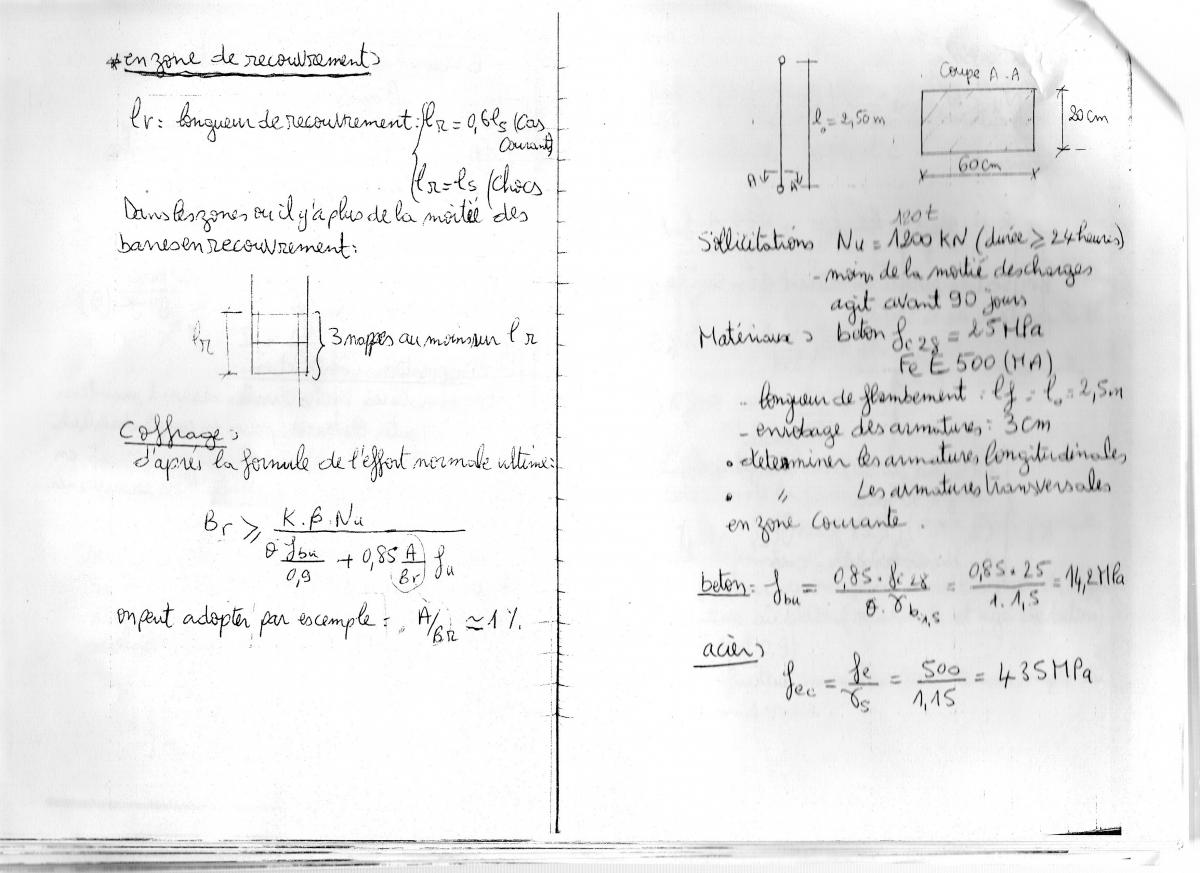 * en zone de recouvrement :
lr : longueur de recouvrement : lr = 0,6 ls (Cas
Courant)
lr = ls (chocs
Dans les zones ou il y'a plus de la moitié des
barres en recouvrement :
lr
3 nappes au moins sur lr
Coffrage :
d'après la formule de l'effort normale ultime :
Br ≥ K.β.Nu / (θ fbu/0,9 + 0,85 A/Br fu)
on peut adopter par escemple : A/Br ≃ 1 %.
Coupe A-A
l₀ = 2,50 m
20 cm
60 cm
A A
120 t
Sollicitations Nu = 1200 KN (durée ≥ 24 heures)
- moins de la moitié des charges
agit avant 90 jours
Matériaux : béton fc28 = 25 MPa
Fe E 500 (HA)
- longueur de flambement : lf = l₀ = 2,5 m
- enrobage des armatures : 3 cm
• determiner les armatures longitudinales
• " Les armatures transversales
en zone courante .
beton : fbu = 0,85 . fc28 / θ . γb 1,5 = 0,85 . 25 / 1 . 1,5 = 14,2 MPa
acier :
fec = fe / γs = 500 / 1,15 = 435 MPa